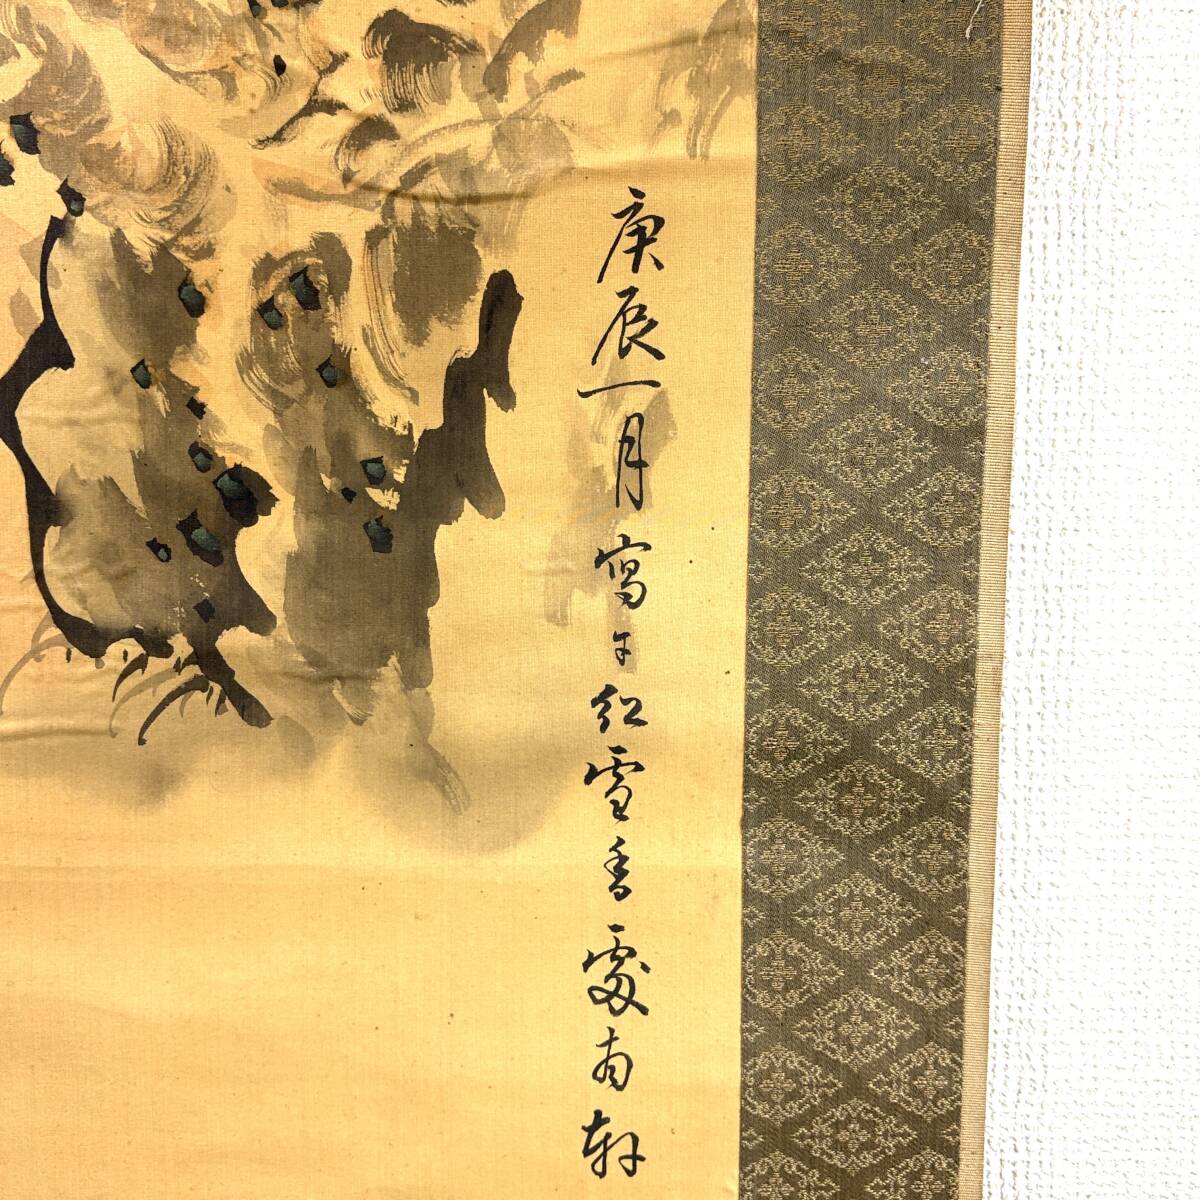 庚辰一月寫于紅雪香處南軒